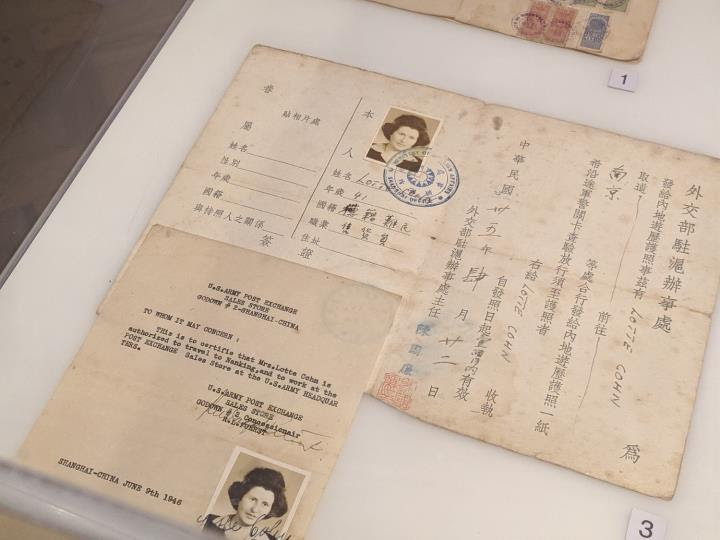 外交部駐滬辦事處
發給內地遊歷護照事茲有 LOTTE COHN 為
取道 南京 前往
等處合行發給內地遊歷護照一紙
希沿途軍警關卡查驗放行須至護照者
右給 LOTTE COHN 收執
自發照日起 有效
中華民國卅五年肆月廿二日
外交部駐滬辦事處主任
本人
姓名 Lotte
年歲 41
國籍 難民
職業 售貨員
住址
貼相片處
眷屬
姓名
性別
年歲
國籍
與持照人之關係
簽證
U.S.ARMY POST EXCHANGE
SALES STORE
GODOWN # 2-SHANGHAI-CHINA
TO WHOM IT MAY CONCERN :
THis is to certify that Mrs.Lotte Cohn is
authorized to travel to Nanking,and to work at the
POST EXCHANGE Sales Store at the U.S.ARMY HEADQUAR
TERS.
U.S.ARMY POST EXCHANGE
SALES STORE
GODOWN #/2, Concessionair
SHANGHAI-CHINA JUNE 9th 1946
1
3